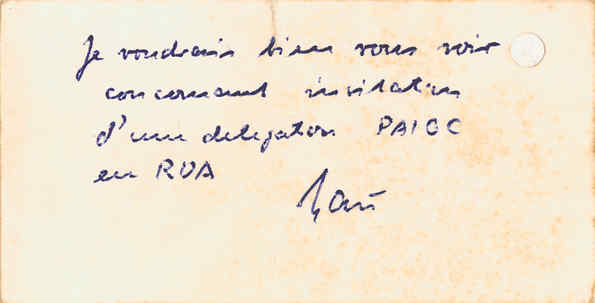 Je voudrais bien vous voir
concernant invitation
d'une delegation PAIGC
en RUA